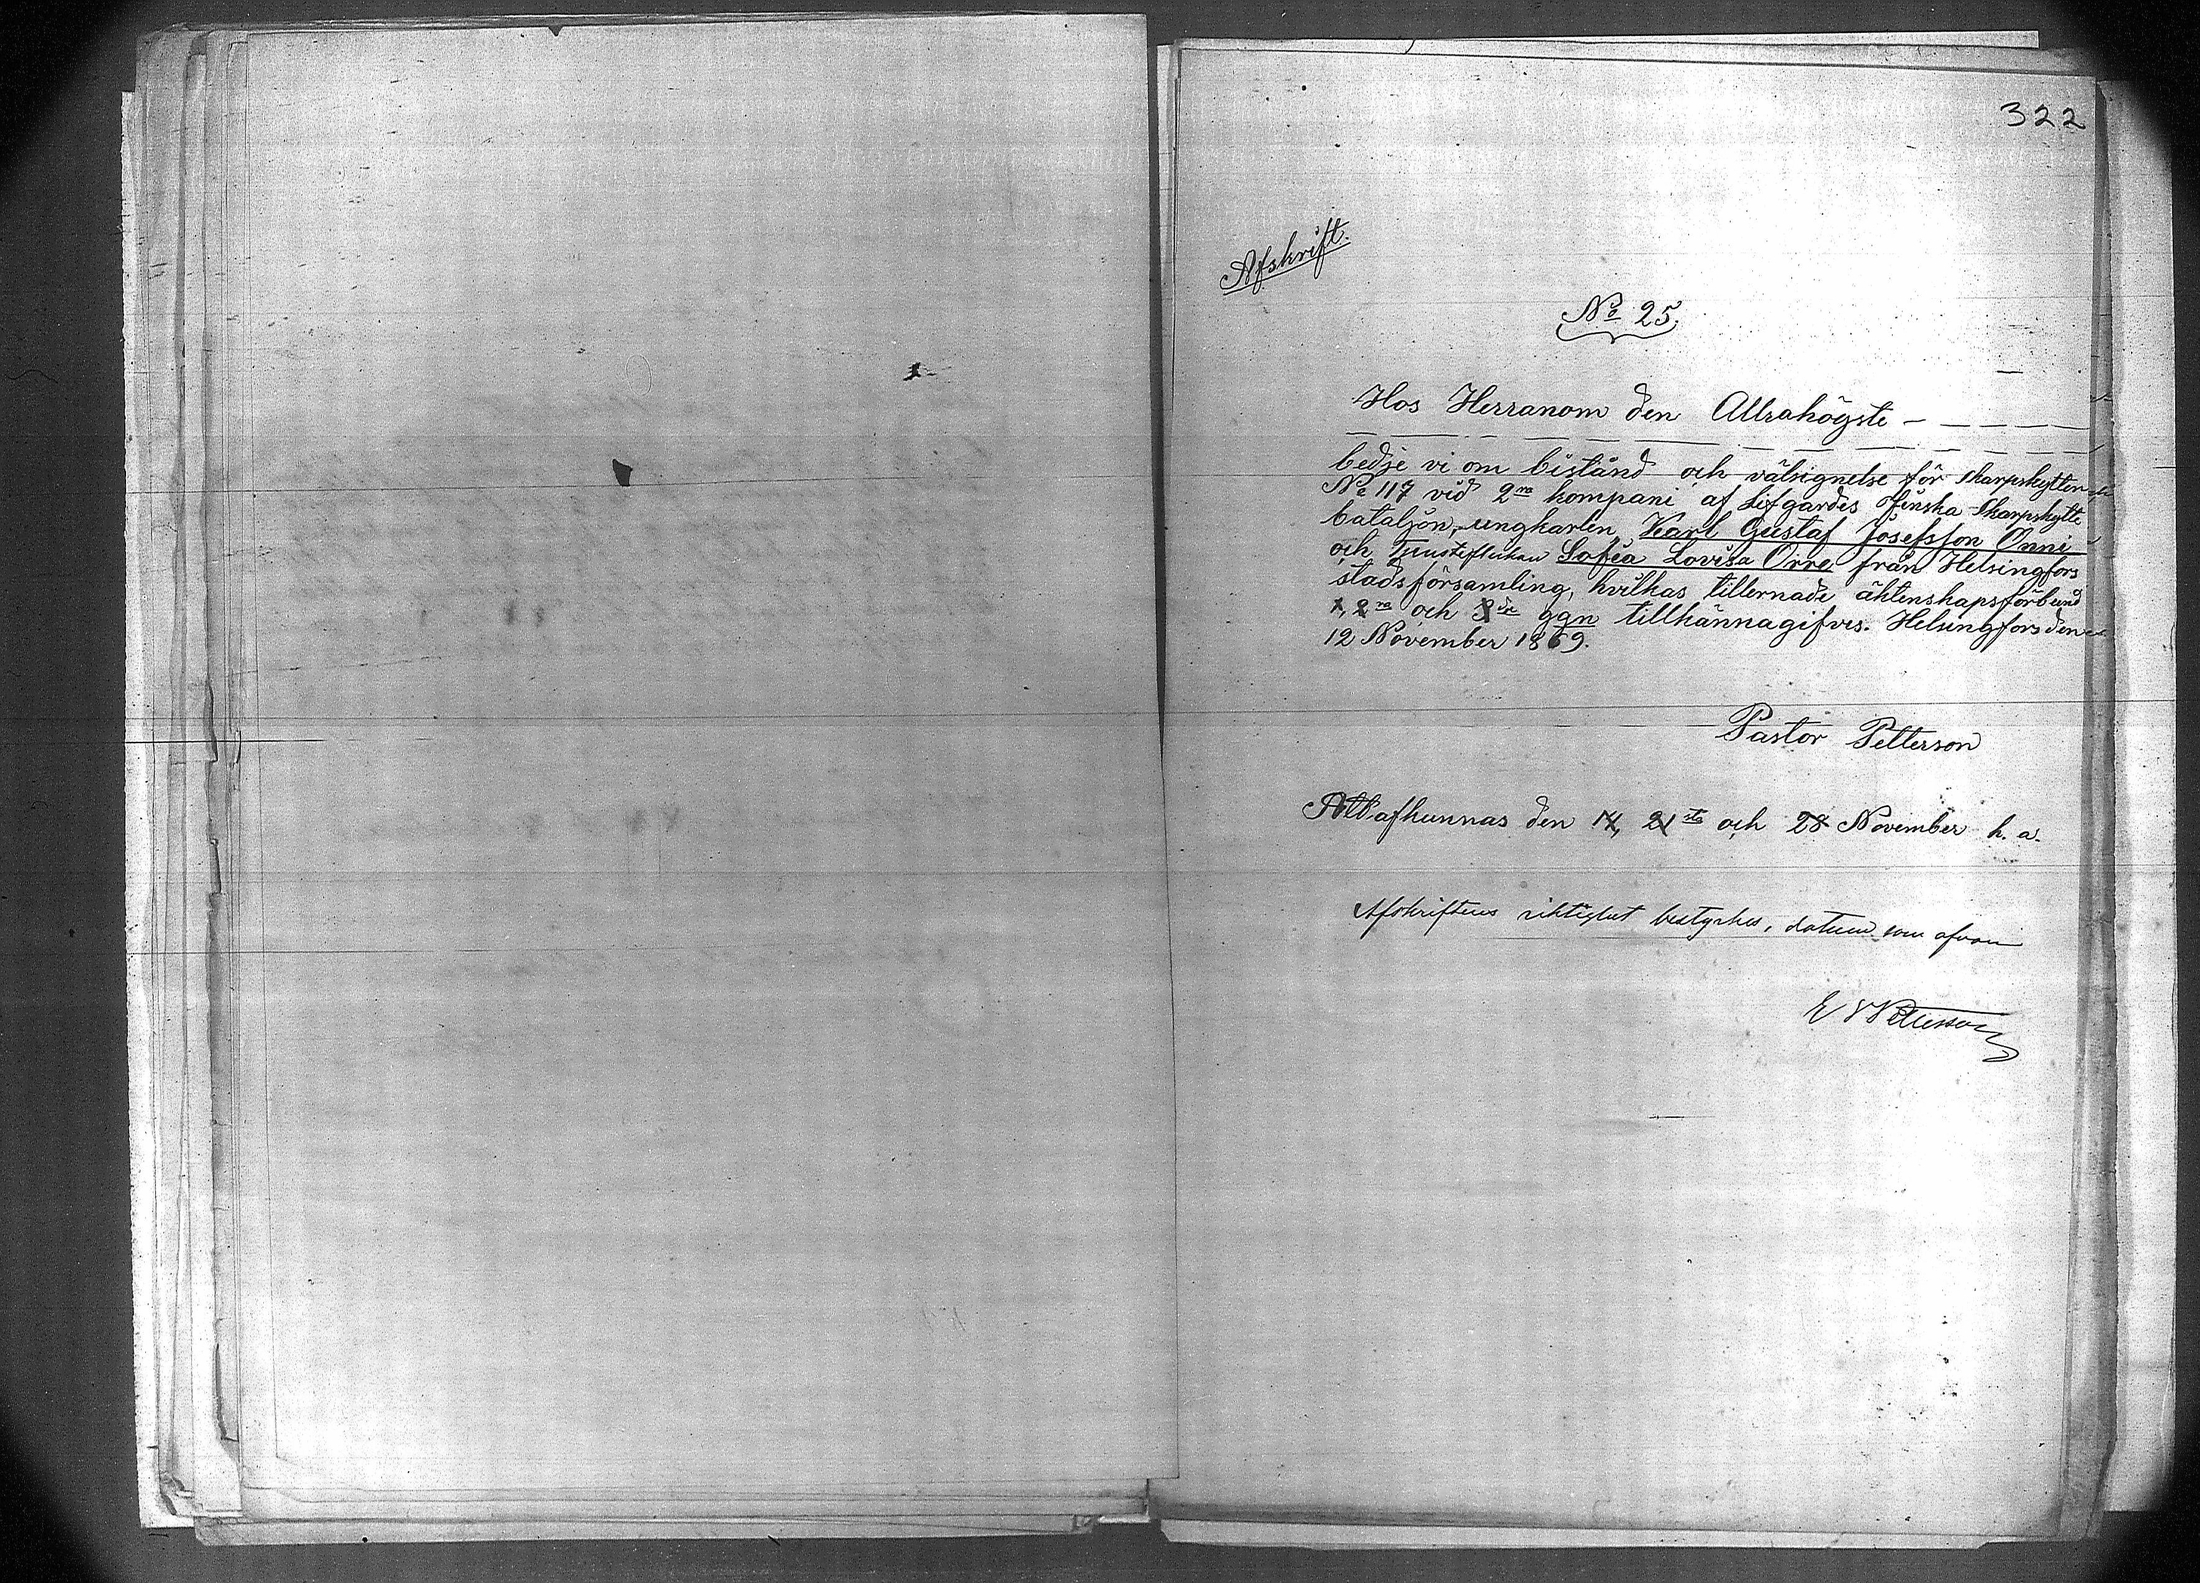 322
Afskrift.
No 25.
Hos Herranom den Allrahögste - - - - -
bedje vi om bistånd och välsignelse för skarpskytten
No 117 vid 2ra kompani af Lifgardes Finska Skarpskytte
bataljon, ungkarlen Karl Gustaf Josefsson Onni
och Tjensteflickan Sofia Lovisa Orre från Helsingfors
stadsförsamling, hvilkas tillernade äktenskapsförbund
1, 2ra och 3dje ggn tillkännagifves. Helsingfors den
12 November 1869.
Pastor Petterson
Att afkunnas den 14, 21sta och 28 November h. a.
Afskriftens riktighet bestyrkes, datum som ofvan
Petterson